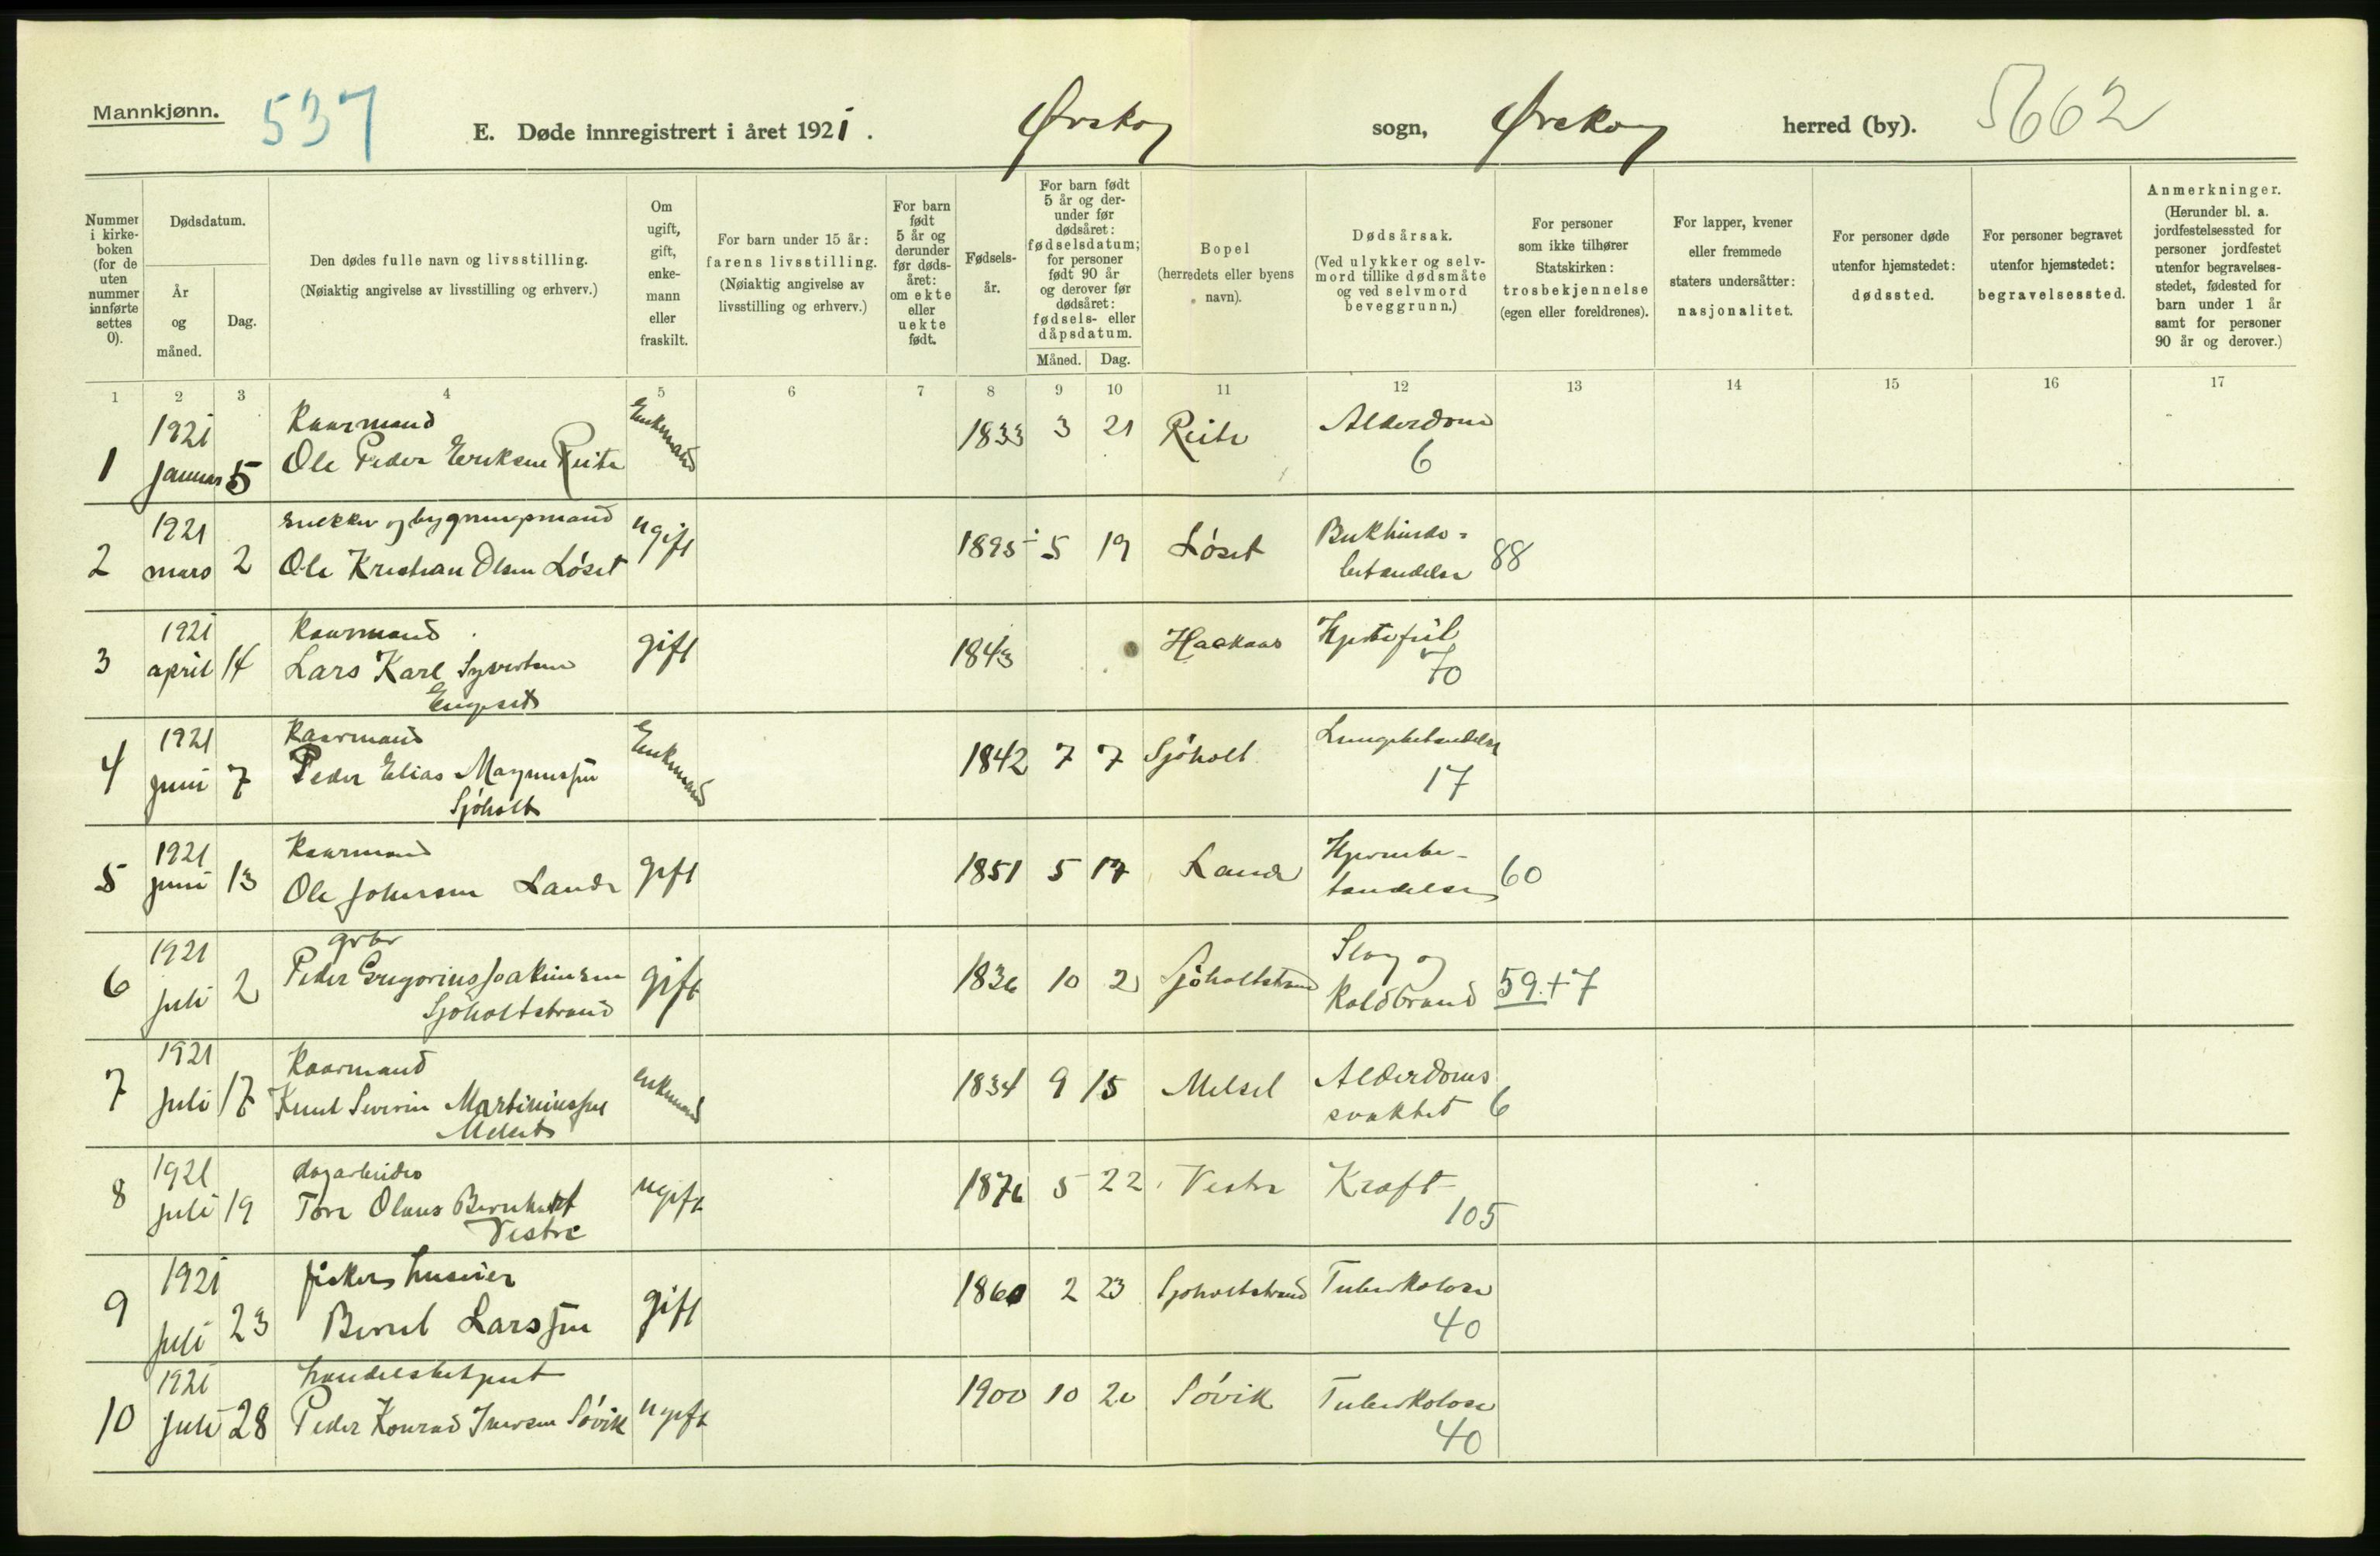 Mannkjønn.
537
E. Døde innregistrert i året 1921.
Ørskog sogn, Ørskog herred (by).
5662
Nummer i kirke-boken (for de uten nummer innførte settes 0).
Dødsdatum.
År og måned.
Dag.
Den dødes fulle navn og livsstilling.
(Nøiaktig angivelse av livsstilling og erhverv.)
Om ugift, gift, enke-mann eller fraskilt.
For barn under 15 år: farens livsstilling.
(Nøiaktig angivelse av livsstilling og erhverv.)
For barn født 5 år og derunder før døds-året: om ekte eller uekte født.
Fødsels-år.
For barn født 5 år og der-under før dødsåret: fødselsdatum; for personer født 90 år og derover før dødsåret: fødsels- eller dåpsdatum.
Måned. Dag.
Bopel (herredets eller byens navn).
Dødsårsak.
(Ved ulykker og selv-mord tillike dødsmåte og ved selvmord beveggrunn.)
For personer som ikke tilhører Statskirken: trosbekjennelse (egen eller foreldrenes).
For lapper, kvener eller fremmede staters undersåtter: nasjonalitet.
For personer døde utenfor hjemstedet: dødssted.
For personer begravet utenfor hjemstedet: begravelsessted.
Anmerkninger.
(Herunder bl. a. jordfestelsessted for personer jordfestet utenfor begravelses-stedet, fødested for barn under 1 år samt for personer 90 år og derover.)
1 2 3 4 5 6 7 8 9 10 11 12 13 14 15 16 17
1 1921 januar 5 Kaarmand Ole Peder Eriksen Reite Enkemand 1833 3 21 Reite Alderdom 6
2 1921 mars 2 snekker og bygningsmand Ole Kristian Olsen Løset ugift 1895 5 19 Løset Bukhinde-betændelse 88
3 1921 april 14 Kaarmand Lars Karl Syvertsen Engeset gift 1843 Haakaas Hjertefeil 70
4 1921 juni 7 Kaarmand Peder Elias Magnussen Sjøholt Enkemand 1842 7 7 Sjøholt Lungebetændelse 17
5 1921 juni 13 Kaarmand Ole Johnsen Lande gift 1851 5 17 Lande Hjernebe-tændelse 60
6 1921 juli 2 gbr Peder Gregorius Joakimsen Sjøholtstrand gift 1836 10 2 Sjøholtstrand Slag og Koldbrand 59.+7
7 1921 juli 17 Kaarmand Knut Severin Martinussen Melset enkemand 1834 9 15 Melset Alderdoms svakhet 6
8 1921 juli 19 dagarbeider Tore Olaus Bernhard Vestre ugift 1876 5 22 Vestre Kræft 105
9 1921 juli 23 fisker, huseier Bernt Larssen gift 1860 2 23 Sjøholtstrand Tuberkolose 40
10 1921 juli 28 handelsbetjent Peder Konrad Iversen Søvik ugift 1900 10 20 Søvik Tuberkolose 40